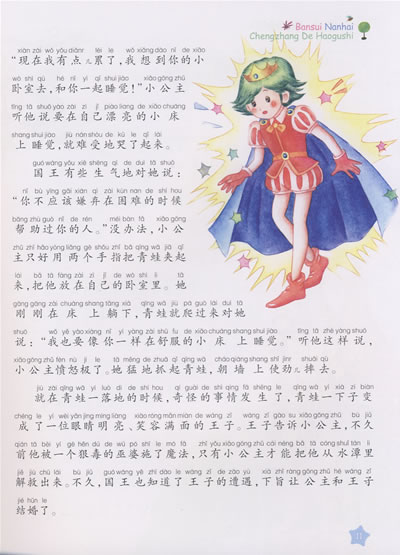 Bansui Nanhai
Chengzhang De Haogushi
xiàn zài wǒ yǒu diǎnr lèi le wǒ xiǎng dào nǐ de xiǎo
“现在我有点儿累了,我想到你的小
wò shì qù hé nǐ yī qǐ shuì jiào xiǎo gōng zhǔ
卧室去,和你一起睡觉!”小公主
tīng tā shuō yào zài zì jǐ piào liang de xiǎo chuáng
听他说要在自己漂亮的小床
shang shuì jiào jiù nán shòu de kū le qǐ lái
上睡觉,就难受地哭了起来。
guó wáng yǒu xiē shēng qì de duì tā shuō
国王有些生气地对她说:
nǐ bù yīng gāi xián qì zài kùn nan de shí hou
“你不应该嫌弃在困难的时候
bāng zhù guò nǐ de rén méi bàn fǎ xiǎo gōng
帮助过你的人。”没办法,小公
zhǔ zhǐ hǎo yòng liǎng gè shǒu zhǐ bǎ qīng wā jiā qǐ
主只好用两个手指把青蛙夹起
lái bǎ tā fàng zài zì jǐ de wò shì li tā
来,把他放在自己的卧室里。她
gāng gāng zài chuáng shang tǎng xià qīng wā jiù pá guò lái duì tā
刚刚在床上躺下,青蛙就爬过来对她
shuō wǒ yě yào xiàng nǐ yī yàng zài shū fu de xiǎo chuáng shang shuì jiào tīng tā zhè yàng shuō
说:“我也要像你一样在舒服的小床上睡觉。”听他这样说,
xiǎo gōng zhǔ fèn nù jí le tā měng de zhuā qǐ qīng wā cháo qiáng shang shǐ jìnr shuāi qù
小公主愤怒极了。她猛地抓起青蛙,朝墙上使劲儿摔去。
jiù zài qīng wā yī luò dì de shí hou qí guài de shì qing fā shēng le qīng wā yī xià zi biàn
就在青蛙一落地的时候,奇怪的事情发生了,青蛙一下子变
chéng le yī wèi yǎn jing míng liàng xiào róng mǎn miàn de wáng zǐ wáng zǐ gào su xiǎo gōng zhǔ bù jiǔ
成了一位眼睛明亮、笑容满面的王子。王子告诉小公主,不久
qián tā bèi yī gè hěn dú de wū pó shī le mó fǎ zhǐ yǒu xiǎo gōng zhǔ cái néng bǎ tā cóng shuǐ tán li
前他被一个狠毒的巫婆施了魔法,只有小公主才能把他从水潭里
jiě jiù chū lái bù jiǔ guó wáng yě zhī dào le wáng zǐ de zāo yù xià zhǐ ràng gōng zhǔ hé wáng zǐ
解救出来。不久,国王也知道了王子的遭遇,下旨让公主和王子
jié hūn le
结婚了。
11